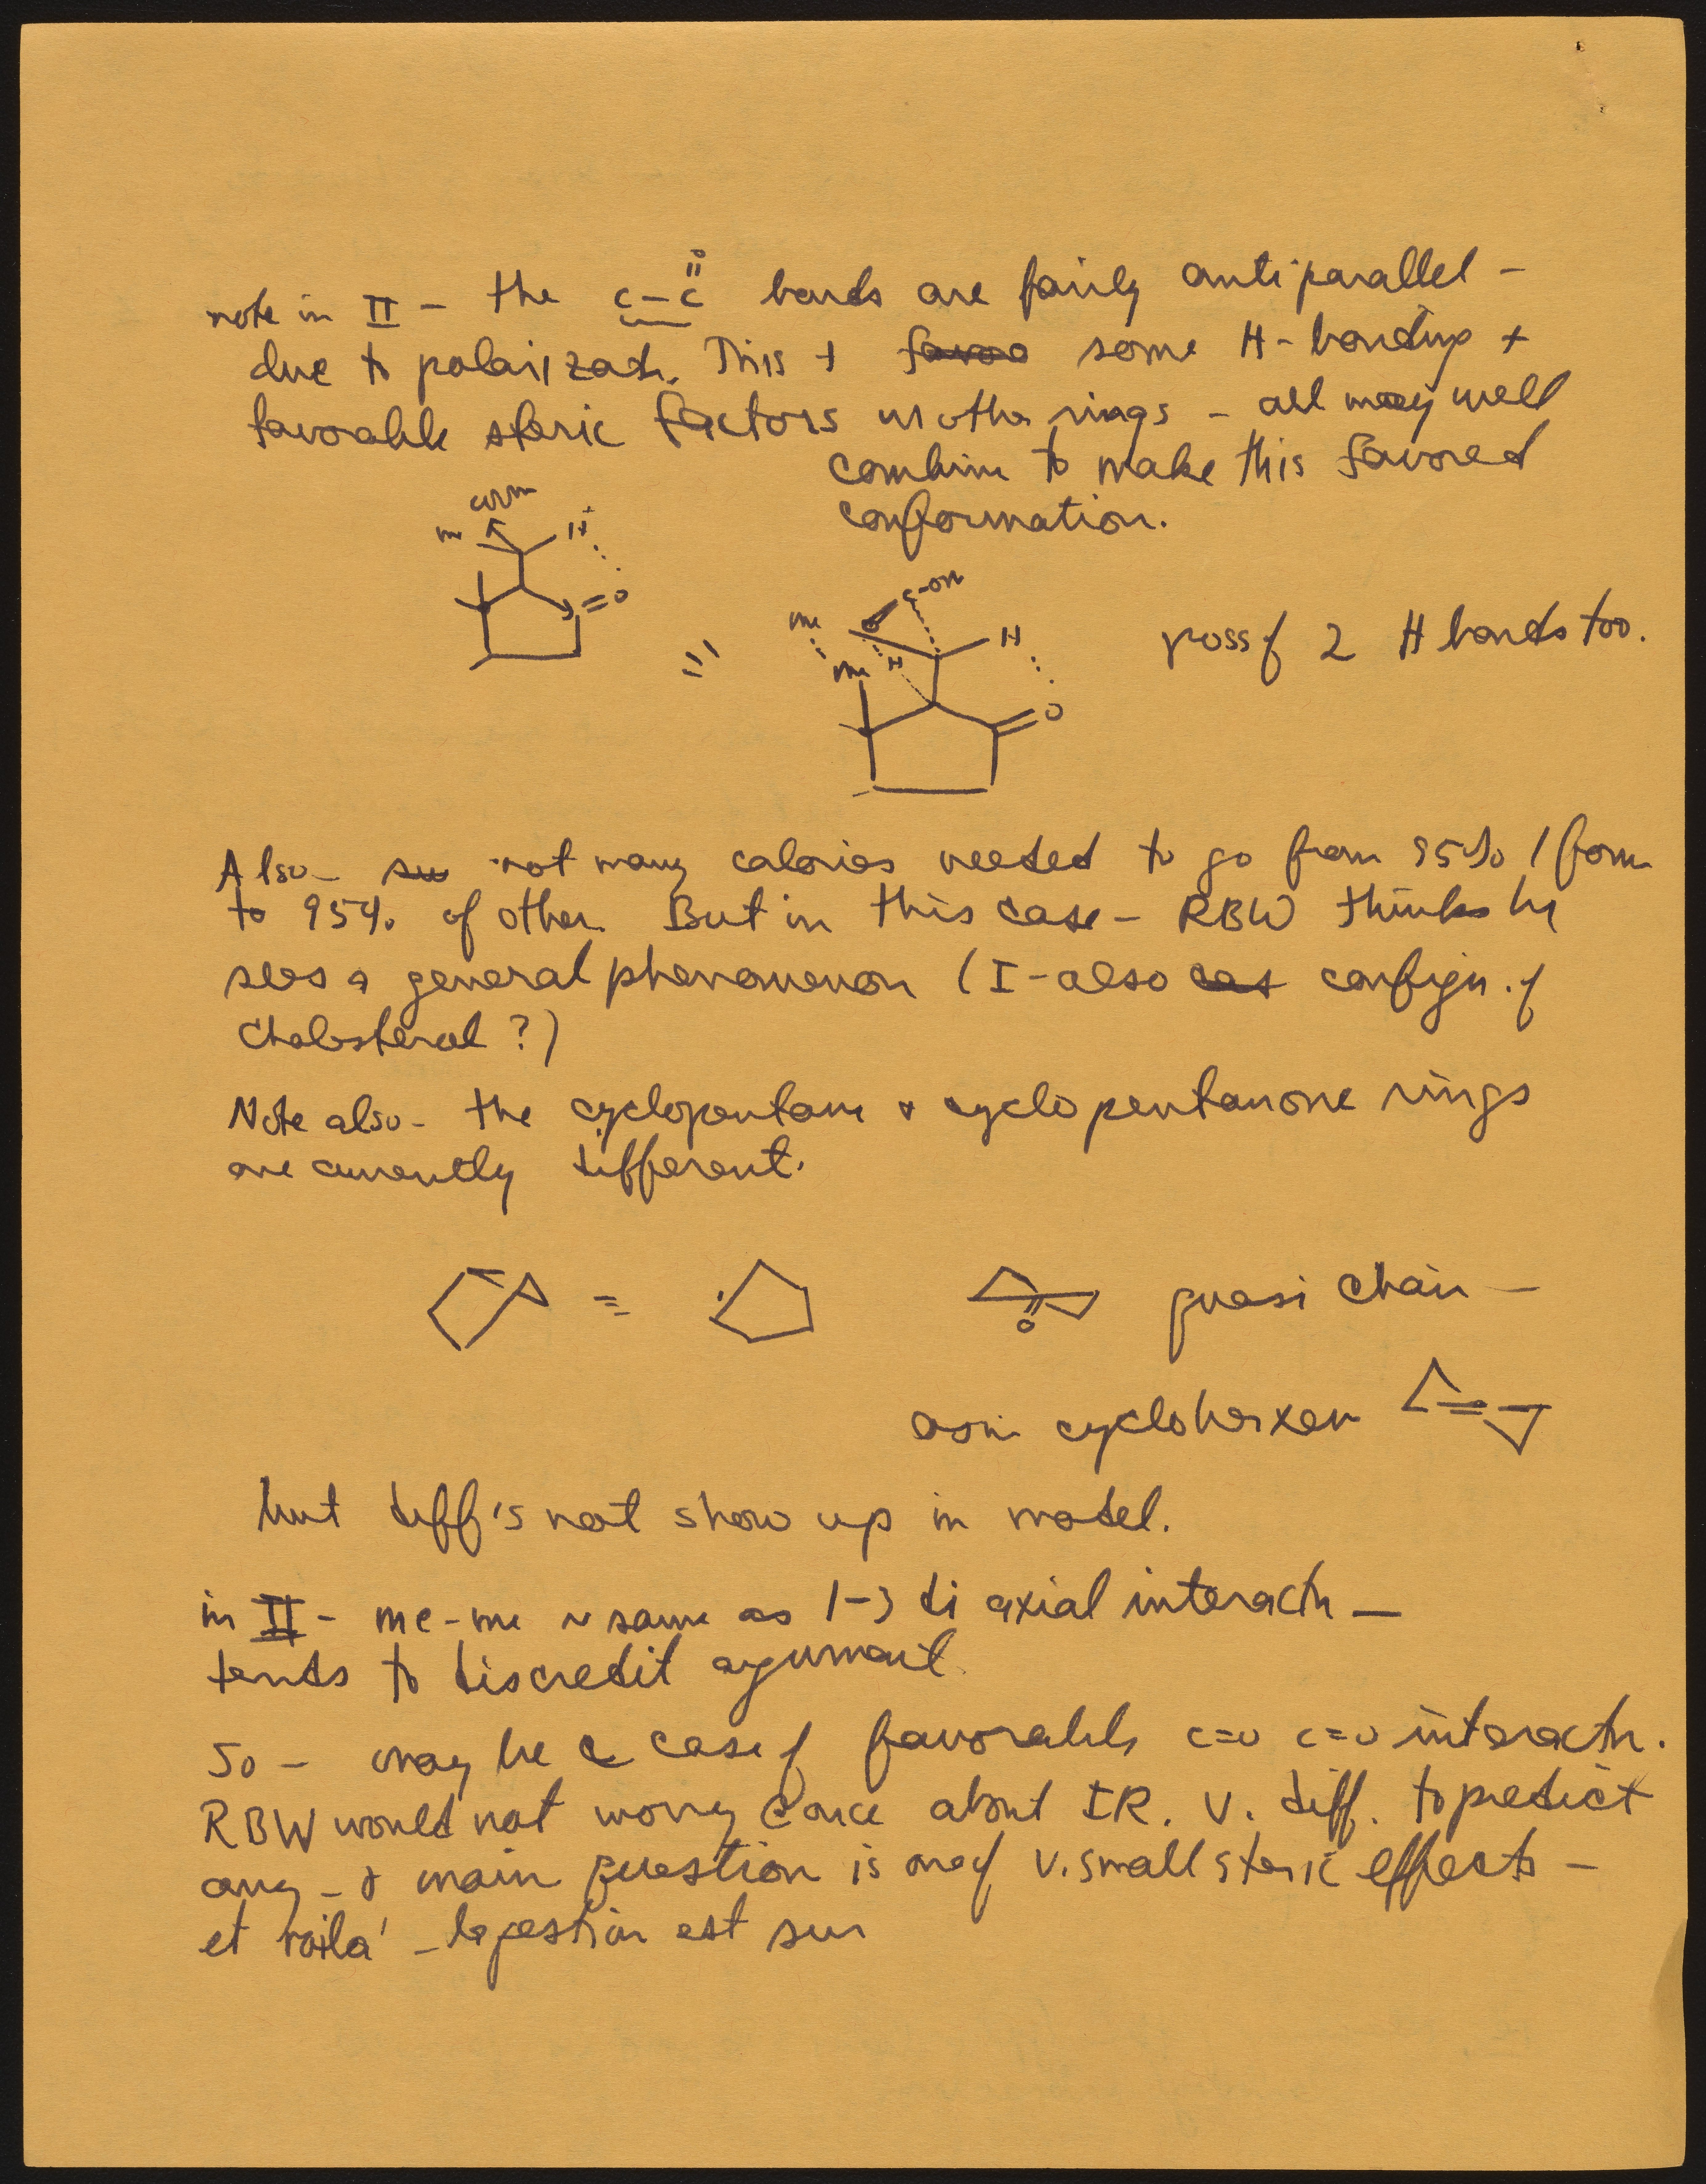 note in II - the c-c=o bonds are fairly antiparallel -
due to polarizatn. This + some H-bonding +
favorable steric factors w other rings - all may well
combine to make this favored
conformation.
me H
=O
me c-OH
H
me H
O
poss of 2 H bonds too.
=
Also - not many calories needed to go from 95% 1 form
to 95% of other. But in this case - RBW thinks he
sees a general phenomenon (I - also config. of
Cholesterol?)
Note also - the cyclopentane & cyclopentanone rings
are currently different.
= O quasi chair -
as in cyclohexen
but diff's not show up in model.
in II - me-me ~ same as 1-3 diaxial interactn -
tends to discredit argument.
So - may be a case of favorable c=o c=o interactn.
RBW would not worry about IR. V. diff. to predict
any - & main question is one of v. small steric effects -
et voila' - est sur